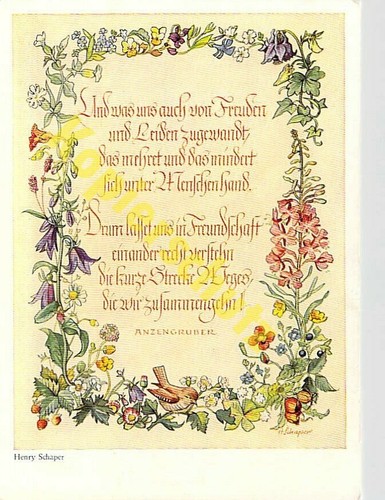 Und was uns auch von Freuden
und Leiden zugewandt
das mehret und das mindert
sich unter Menschenhand.
Drum lasset uns in Freundschaft
einander recht verstehn
die kurze Strecke Weges,
die wir zusammengehn!
ANZENGRUBER
H. Schaper
Henry Schaper
Kopierschutz